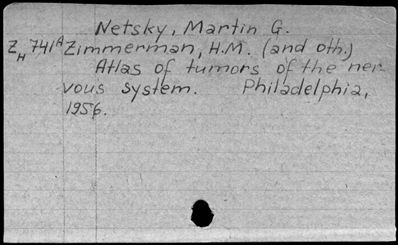 Netsky, Martin G.
ZH 741A Zimmerman, H.M. (and oth.)
Atlas of tumors of the ner
vous system. Philadelphia,
1956.